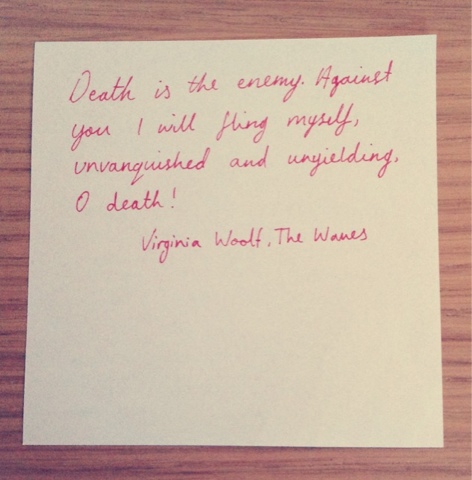 Death is the enemy. Against
you I will fling myself,
unvanquished and unyielding,
O death!
Virginia Woolf, The Waves